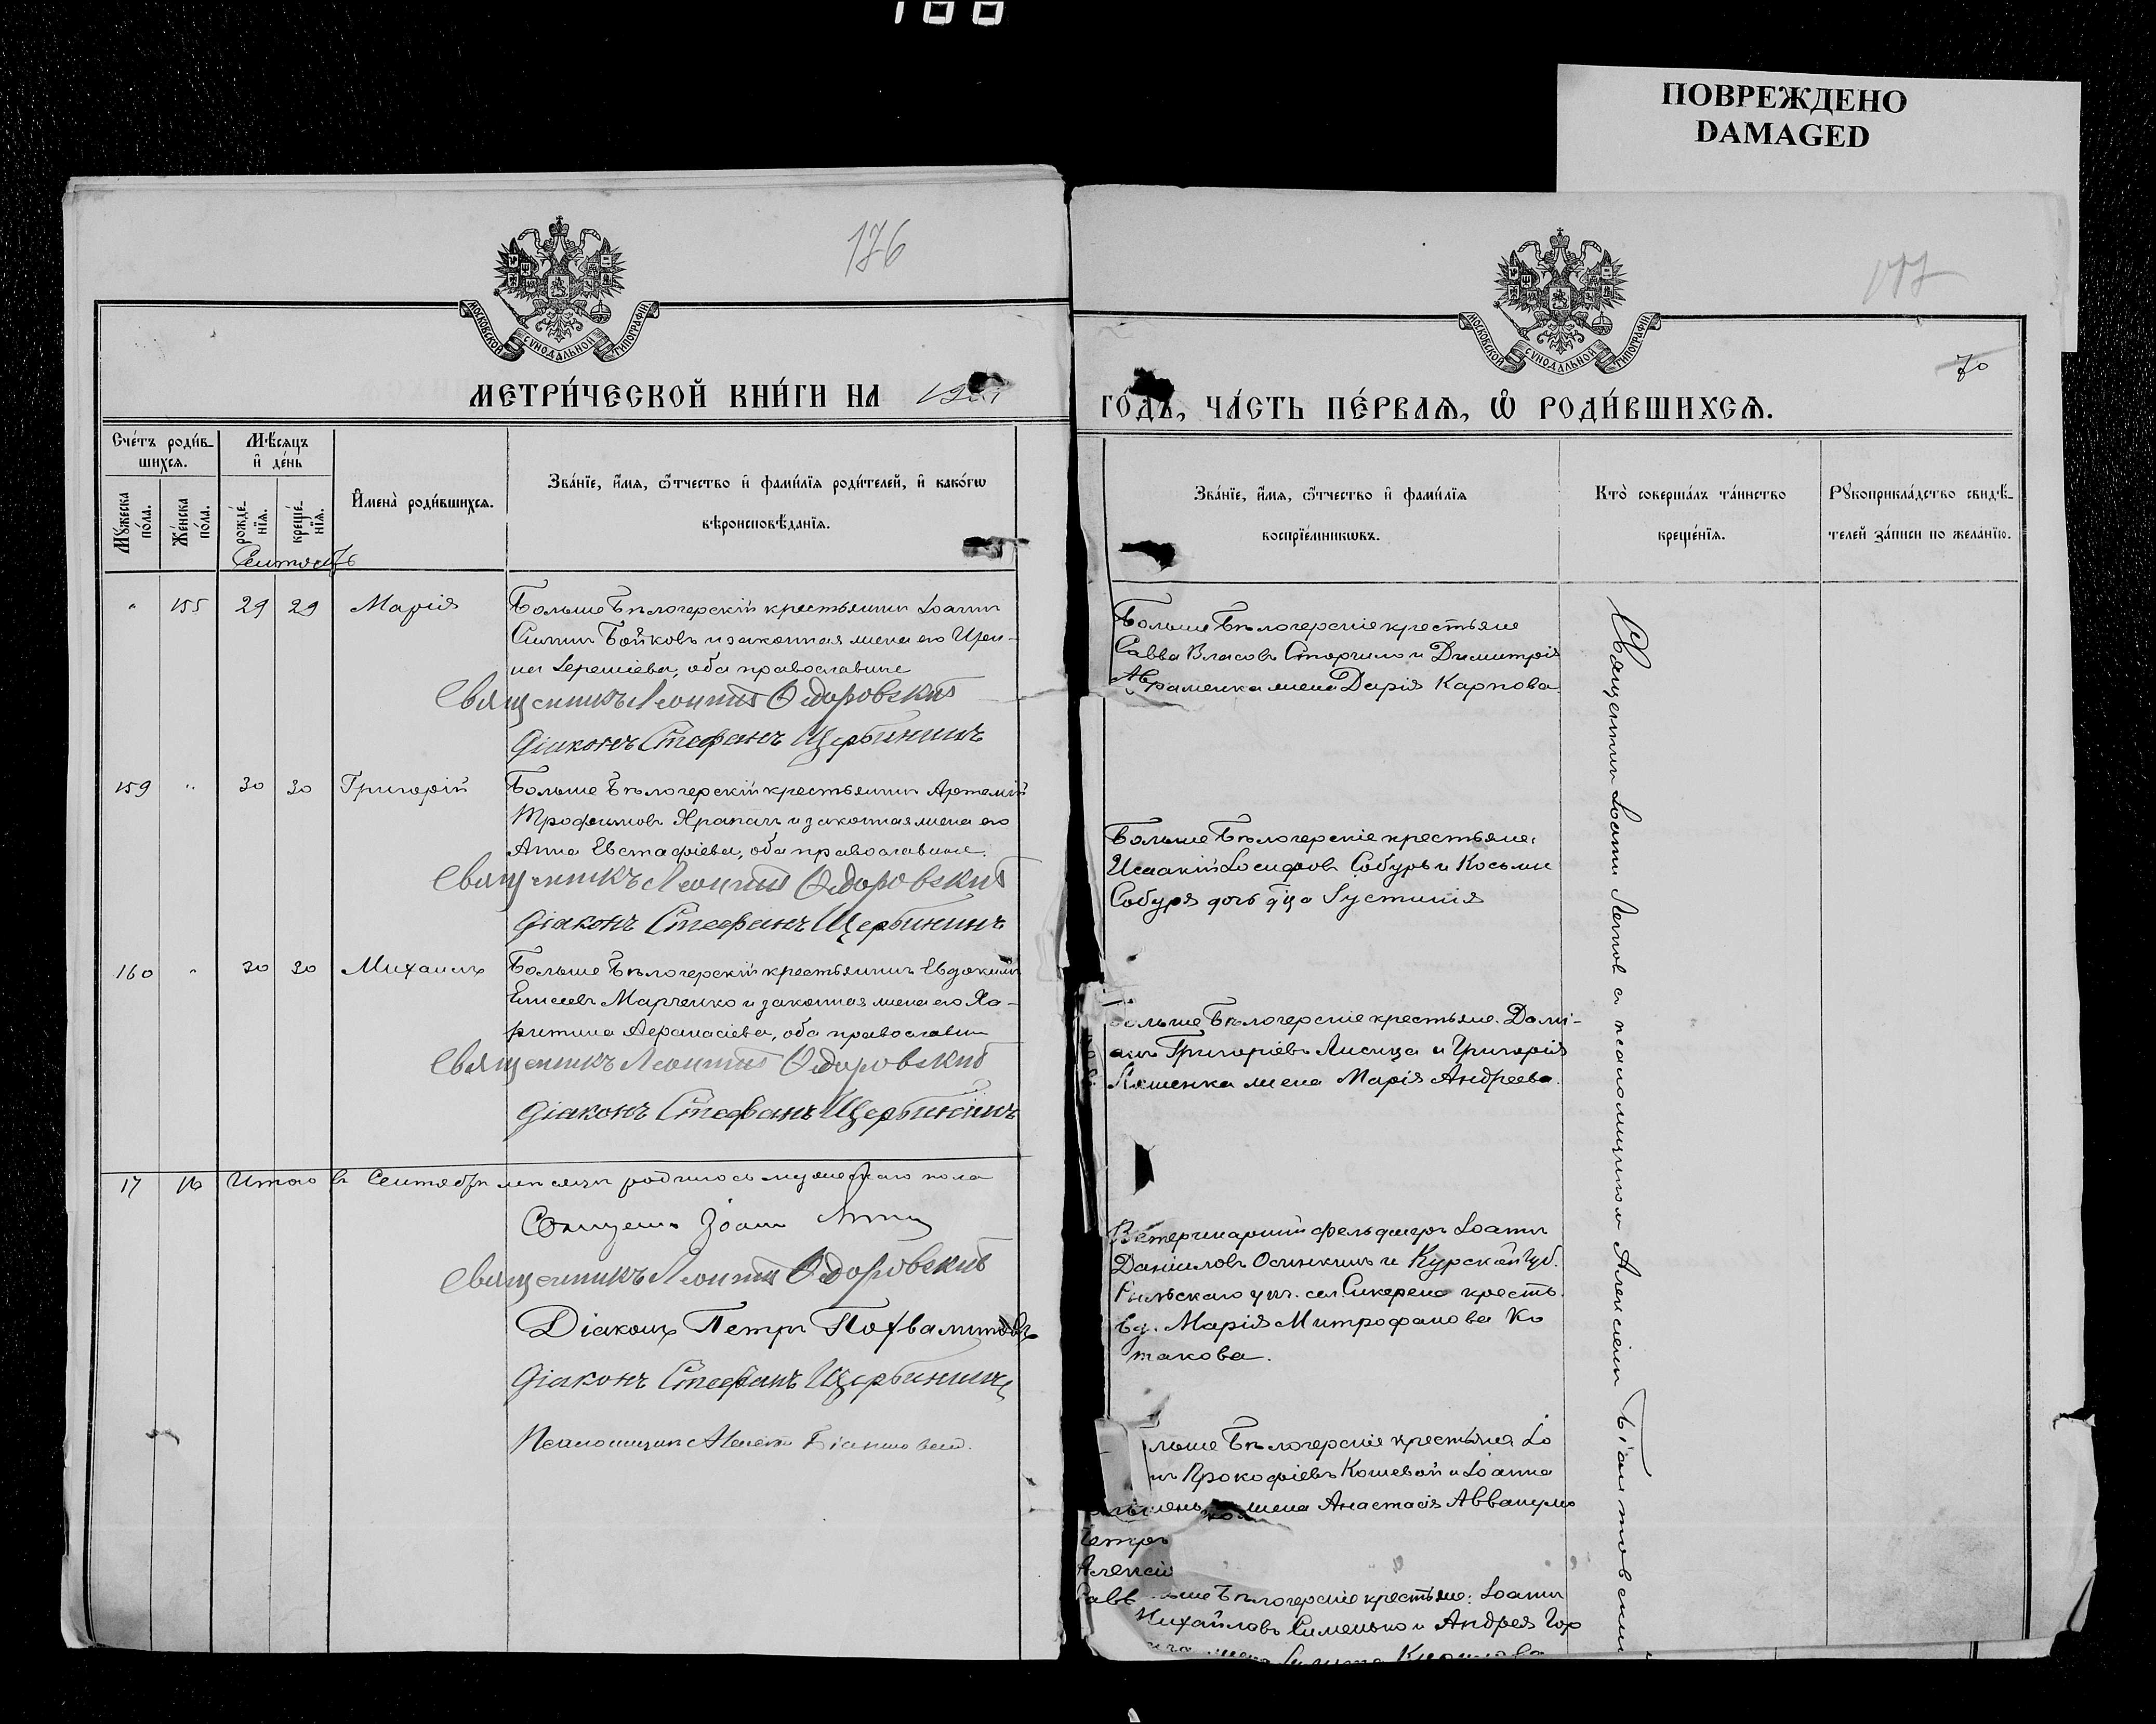 188
ПОВРЕЖДЕНО
DAMAGED
176
МОСКОВСКОЙ СѴНОДАЛЬНОЙ ТИПОГРАФІИ
МЕТРИ́ЧЕСКОЙ КНИ́ГИ НА
Сче́тъ роди́в-
шихсѧ.
Мѣ́сѧцъ
и҆ де́нь
Мꙋ́жеска
по́ла.
Же́нска
по́ла.
рожде́-
нїѧ.
креще́-
нїѧ.
И҆мена̀ роди́вшихсѧ.
Зва́нїе, и҆́мѧ, ѻ҆́тчество и҆ фами́лїѧ роди́телей, и҆ како́гѡ
вѣроисповѣ́данїѧ.
Сентябрь
" 155 29 29 Марія
Больше Бѣлогерскій крестьянинъ Іоаннъ
Бойковъ и законная жена его Ири-
на Іереміева, оба православные
Священникъ Леонтій Ѳедоровскій
Діаконъ Стефанъ Щербининъ
159 " 30 30 Григорій
Больше Бѣлогерскій крестьянинъ Артемій
Трофимовъ Храпачъ и законная жена его
Анна Евстафіева, оба православные.
Священникъ Леонтій Ѳедоровскій
Діаконъ Стефанъ Щербининъ
160 " 30 30 Михаилъ
Больше Бѣлогерскій крестьянинъ Евдокимъ
Елисеевъ Марченко и законная жена его Ха-
ритина Аѳанасіева, оба православные
Священникъ Леонтій Ѳедоровскій
Діаконъ Стефанъ Щербининъ
17 16 Итого въ Сентябрѣ мѣсяцѣ родилось мужескаго пола
Священ. Іоаннъ
Священникъ Леонтій Ѳедоровскій
Діаконъ Петръ Похвалитовъ
Діаконъ Стефанъ Щербининъ
Псаломщикъ Алексій
177
70
МОСКОВСКОЙ СѴНОДАЛЬНОЙ ТИПОГРАФІИ
ГО́ДЪ, ЧА́СТЬ ПЕ́РВАѦ, Ѽ РОДИ́ВШИХСѦ.
Зва́нїе, и҆́мѧ, ѻ҆́тчество и҆ фами́лїѧ
воспрїе́мникѡвъ.
Кто̀ соверша́лъ та́инство
креще́нїѧ.
Рꙋкоприкла́дство свидѣ́-
телей за́писи по жела́нїю.
Больше Бѣлогерскіе крестьяне
Савва Власовъ Сторчило и Димитрія
Авраменка жена Дарія Карпова.
Больше Бѣлогерскіе крестьяне:
Исаакій Іосифовъ Собурь и Косьмы
Собуря дочь дѣвица Іустинія
Больше Бѣлогерскіе крестьяне. Домі-
анъ Григоріевъ Лисица и Григорія
Ляшенка жена Марія Андреева.
Ветеринарный фельдшеръ Іоаннъ
Даниловъ Осинкинъ и Курской губ.
Рыльскаго уѣз. сел. крест.
вд. Марія Митрофанова Ко
такова.
льше Бѣлогерскіе крестьяне Іо
нъ Прокофіевъ Кошевой и Іоанна
жена Анастасія Аввакумо
Петръ
Алексій
Савв
льше Бѣлогерскіе крестьяне: Іоаннъ
Михайловъ Сименько и Андрея Гор
жена
Священникъ Іоаннъ съ псаломщикомъ Алексіемъ